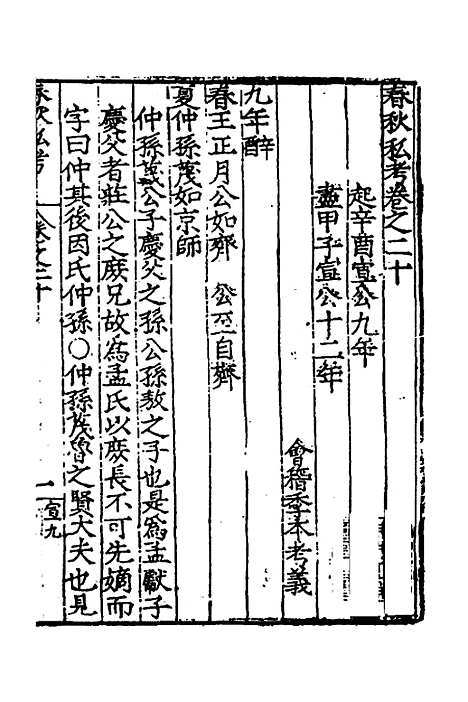 春秋私考卷之二十
起辛酉宣公九年
盡甲子宣公十二年
會稽季本考義
九年辭
春王正月公如齊 公至自齊
夏仲孫蔑如京師
仲孫蔑公子慶父之孫公孫敖之子也是為孟獻子
慶父者莊公之庶兄故為孟氏以庶長不可先嫡而
字曰仲其後因氏仲孫○仲孫蔑魯之賢大夫也見
春秋私考 卷之二十 一 宣九